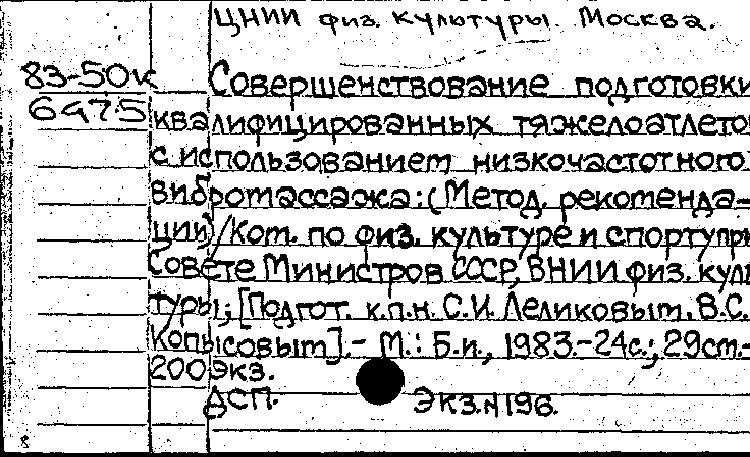 ЦНИИ физ. культуры. Москва.
83-50к Совершенствование подготовки
6475 квалифицированных тяжелоатлето
с использованием низкочастотного
вибромассажа: (Метод. рекоменда-
ции)/Ком. по физ. культуре и спорту при
Совете Министров СССР, ВНИИ физ. куль
туры; [Подгот. к.п.н. С.И. Леликовым, В.С.
Копысовым]. - М.: Б.и., 1983.-24с.; 29см.-
200 экз.
ДСП. Экз.N196.
8